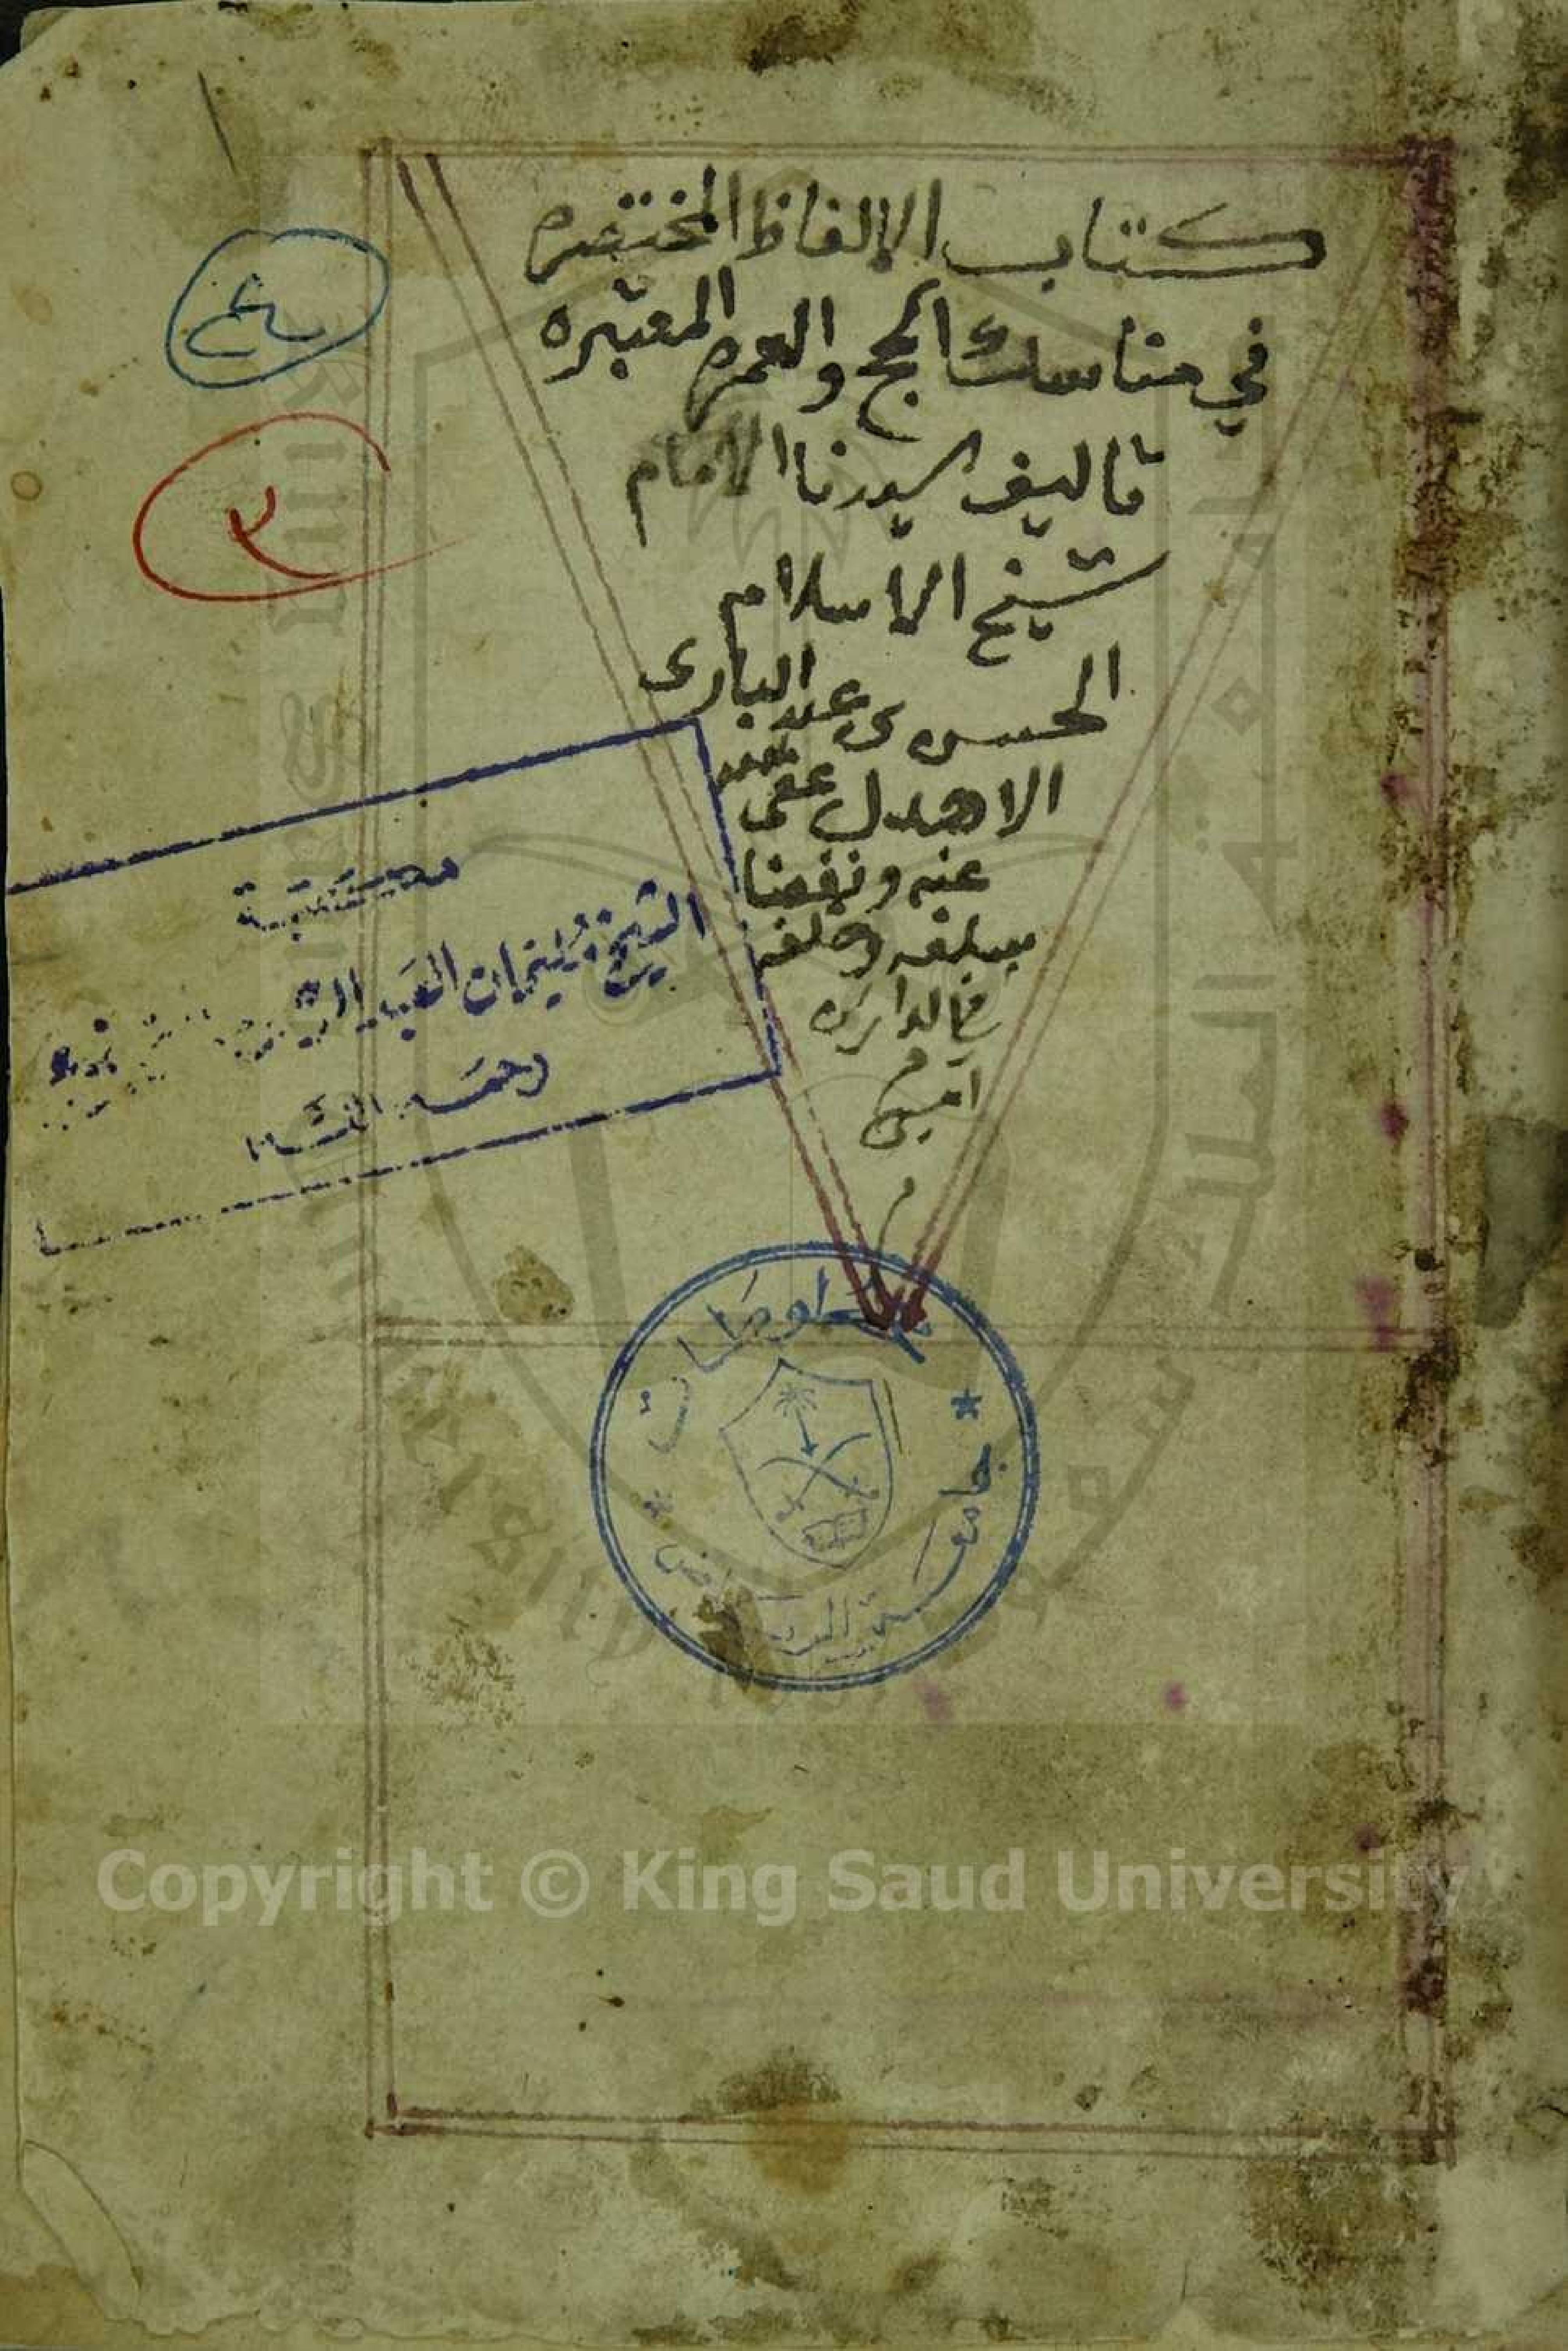 كتاب الالفاظ المختصره
في مناسك الحج والعمره المعتبره
تاليف سيدنا الامام
شيخ الاسلام
الحسن بن عبد البارى
الاهدل عفى
عنه ونفعنا
بسلفه وخلفه
في الدارين
امين
٤
٢
مكتبة
الشيخ سليمان العبد
رحمه الله
مخطوطات
جامعة الرياض
Copyright © King Saud University